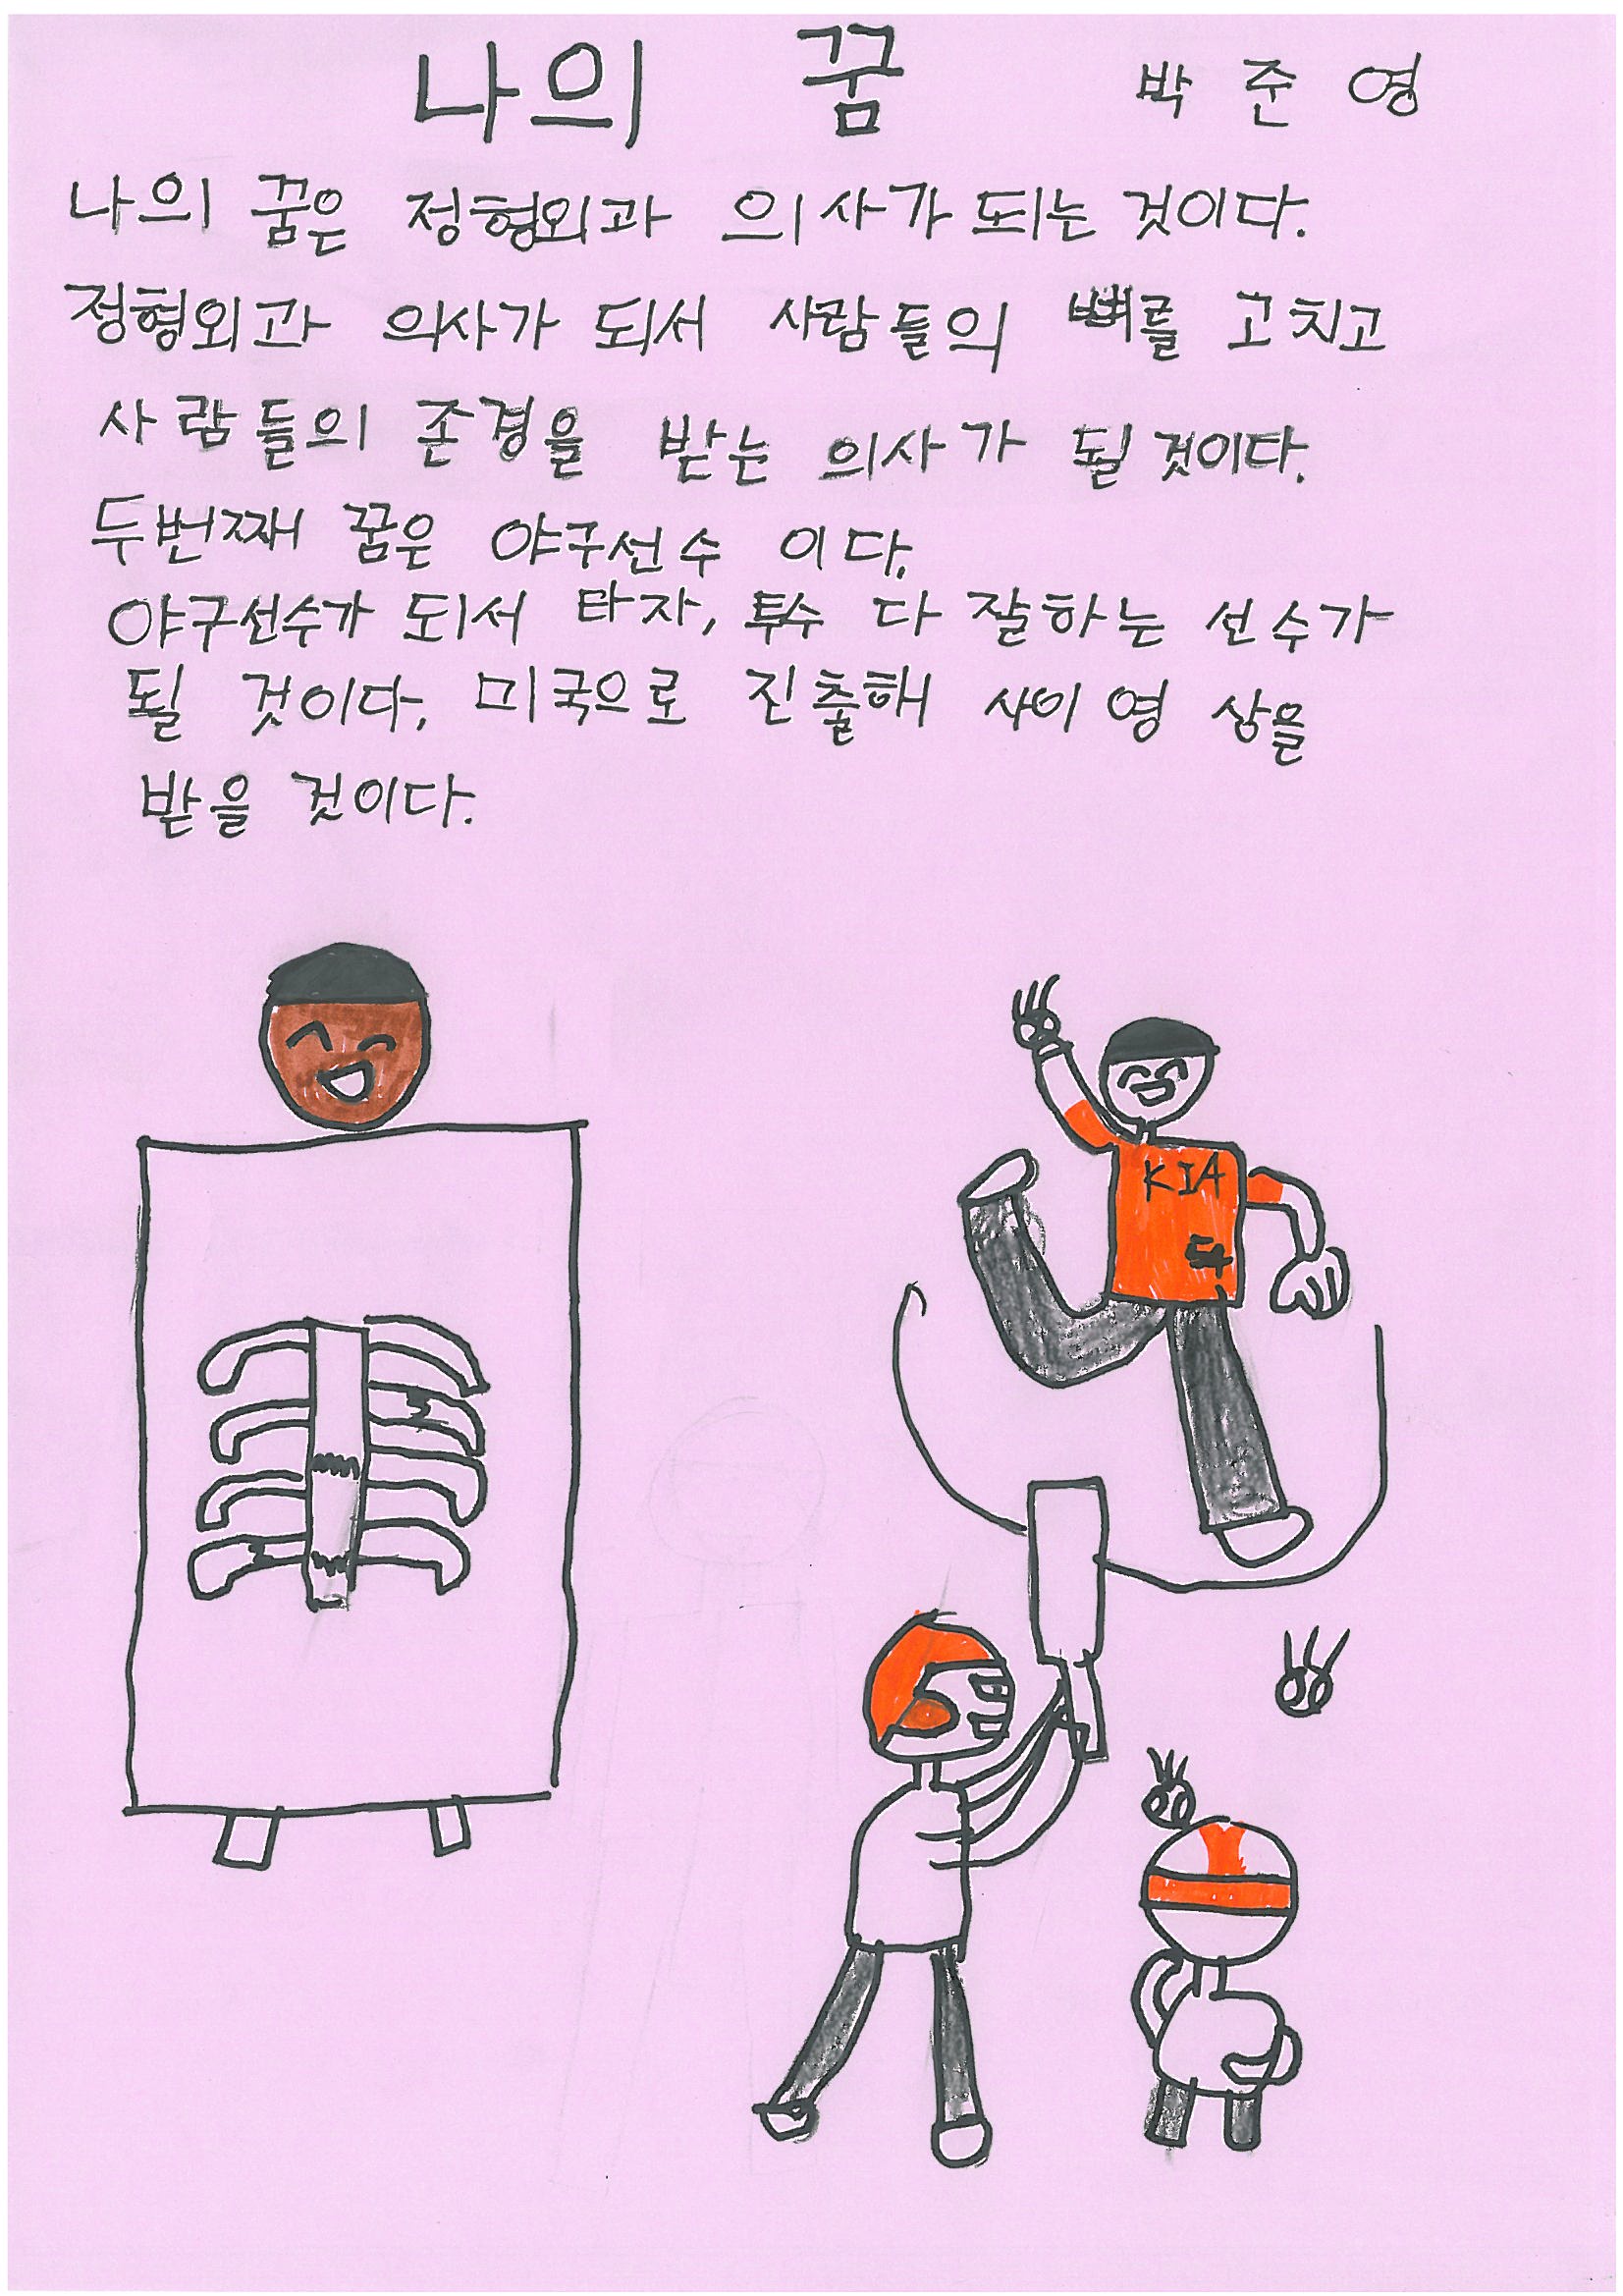 나의 꿈 박준영
나의 꿈은 정형외과 의사가 되는 것이다.
정형외과 의사가 되서 사람들의 뼈를 고치고
사람들의 존경을 받는 의사가 될 것이다.
두번째 꿈은 야구선수 이다.
야구선수가 되서 타자, 투수 다 잘하는 선수가
될 것이다. 미국으로 진출해 사이 영 상을
받을 것이다.
KIA